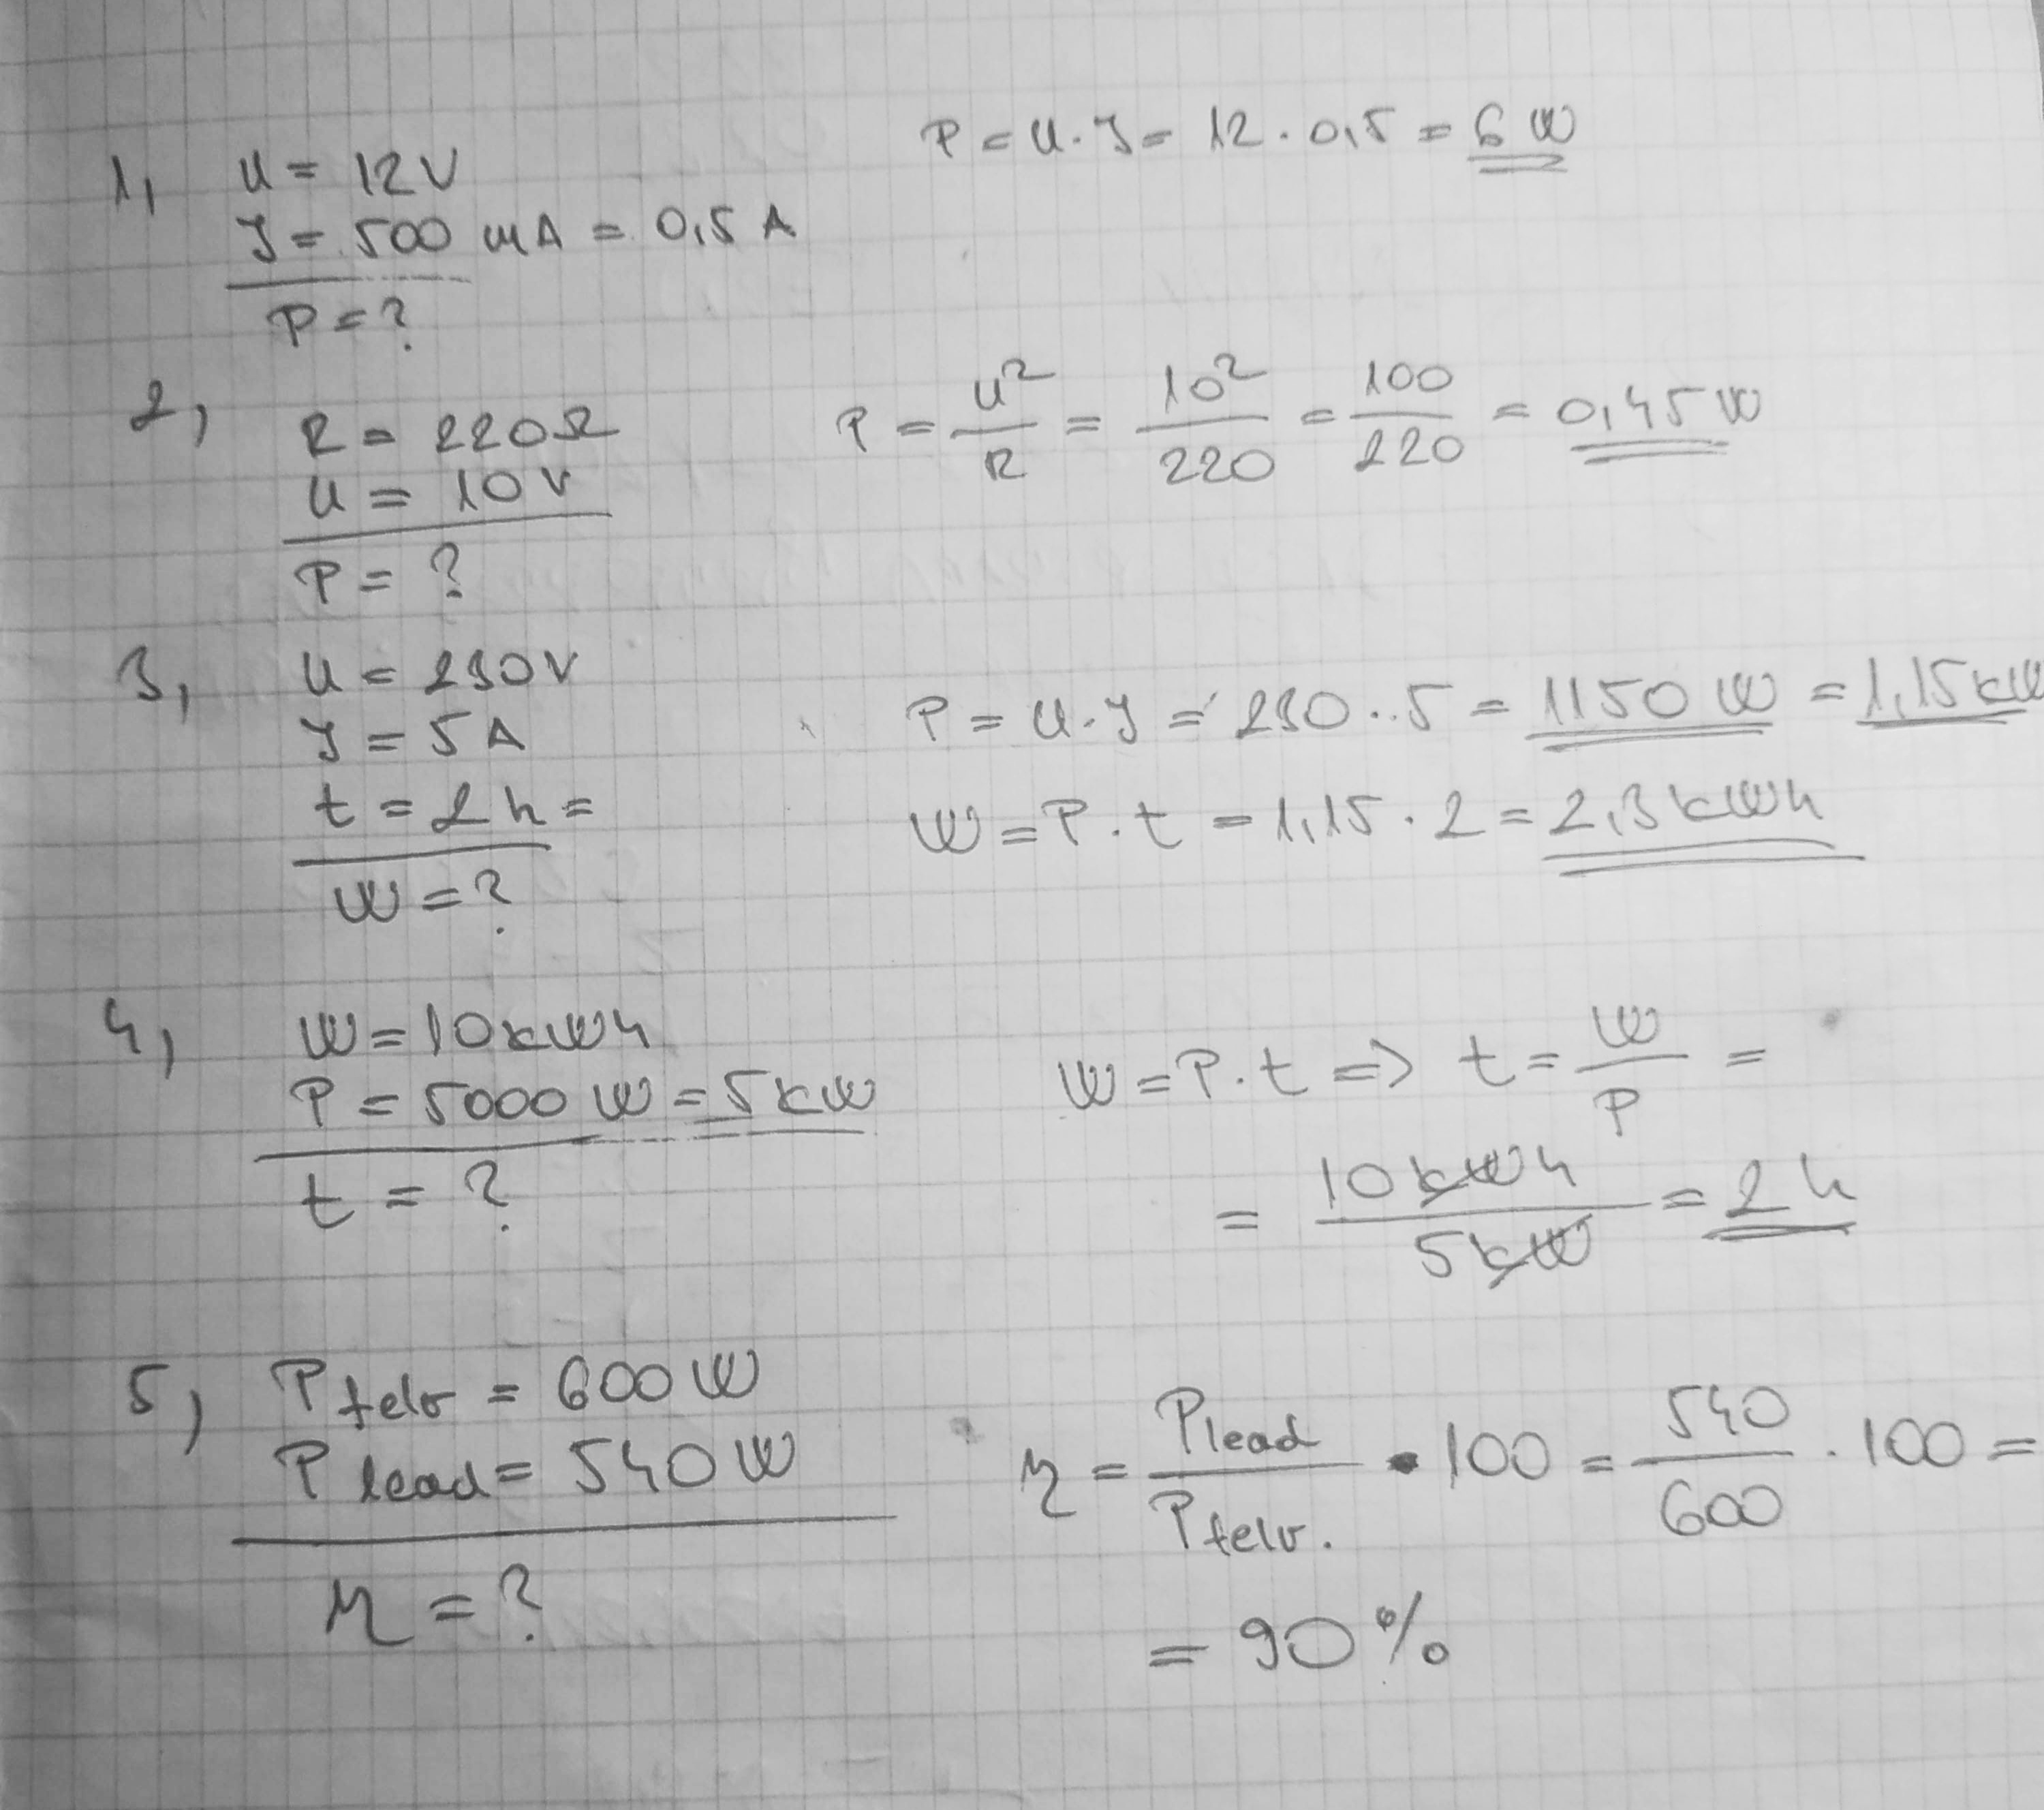 1, U = 12V
I = 500 mA = 0,5 A
P = ?
P = U · I = 12 · 0,5 = 6 W
2, R = 220Ω
U = 10V
P = ?
P = U²/R = 10²/220 = 100/220 = 0,45 W
3, U = 230V
I = 5A
t = 2h =
W = ?
P = U · I = 230 · 5 = 1150 W = 1,15 kW
W = P · t = 1,15 · 2 = 2,3 kWh
4, W = 10kWh
P = 5000 W = 5kW
t = ?
W = P · t => t = W/P =
= 10kWh/5kW = 2h
5, P felv = 600W
P lead = 540W
η = ?
η = P lead/P felv. · 100 = 540/600 · 100 =
= 90%